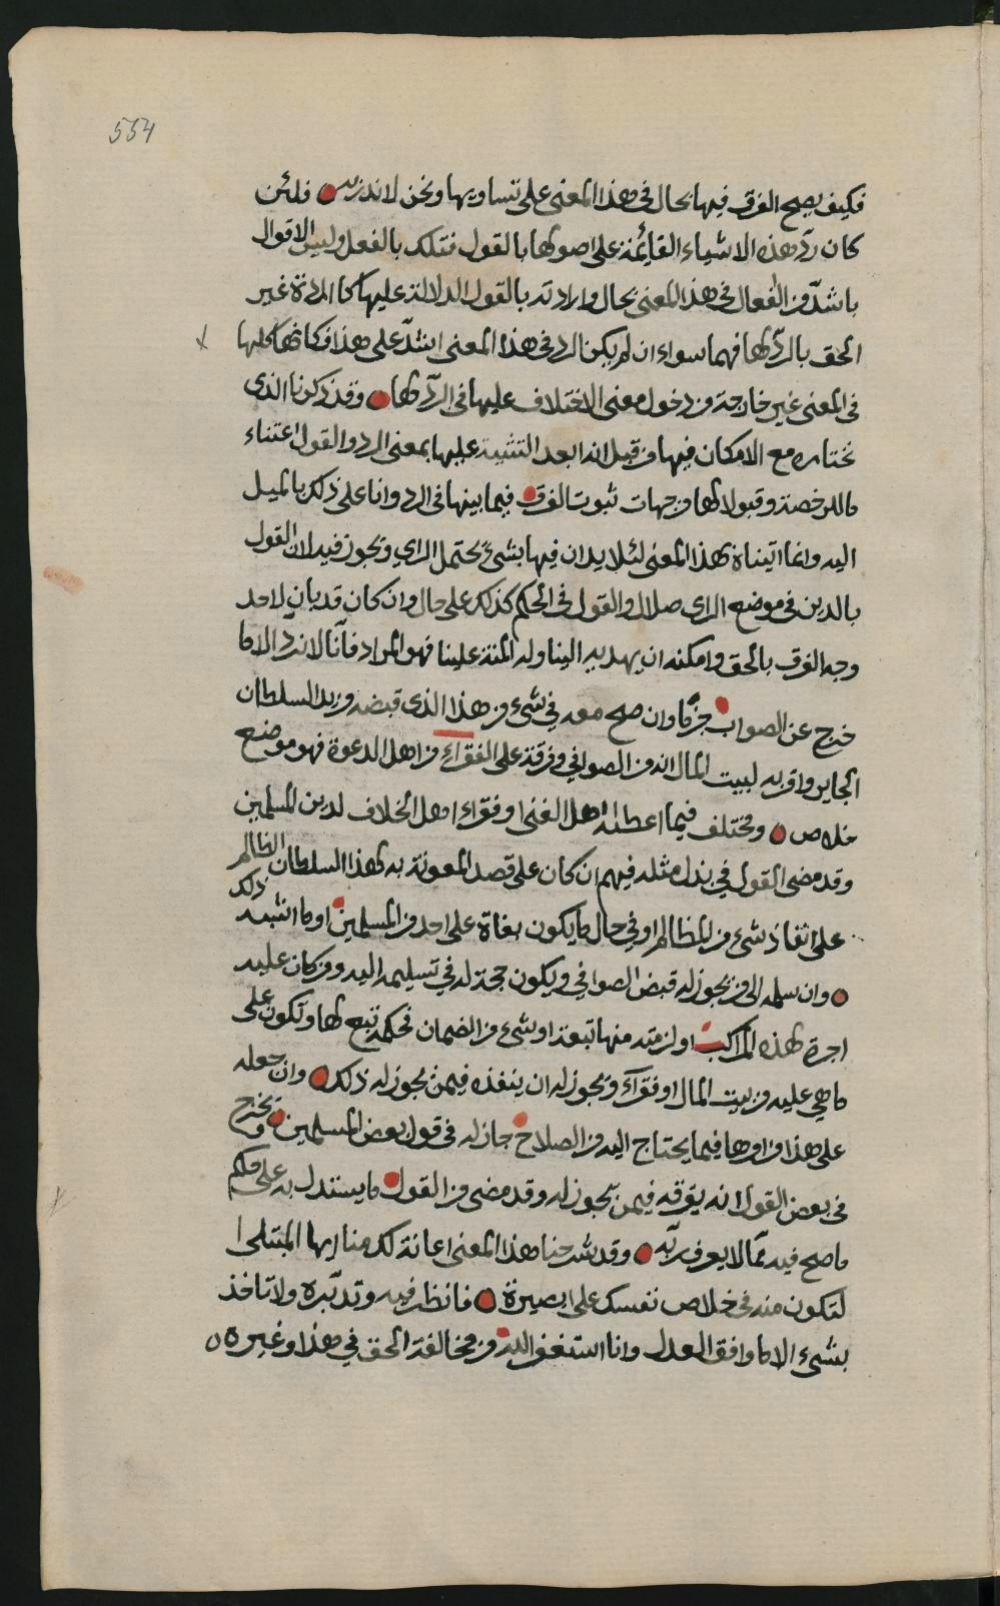 554
فكيف يصح الفرق فيها بحال في هذا المعنى على تساويها ونحن لا ندريه فلئن
كان ردّ هذه الاشياء القائمة على اصولها بالقول فتلك بالفعل وليس الاقوال
باشدّ من الفعال في هذا المعنى بحال وارادته بالقول الدلالة عليها كارادة غير
الحق بالردّ لها فهما سواء ان لم يكن الرد في هذا المعنى اشدّ على هذا فكانها كلها
في المعنى غير خارجة من دخول معنى الاختلاف عليها في الردّ لها وقد ذكرنا الذي
نختاره مع الامكان فيها من قبل انه ابعد التشبية عليها بمعنى الرد والقول اعتناء
ماللرخصة وقبولا لها من جهات ثبوت الفرق فيما بينها في الرد وانا على ذلك بالميل
اليه وانما اتيناه بهذا المعنى لئلا يدان فيها بشيء يحتمل الراي ويجوز فيه لان القول
بالدين في موضع الراي ضلال والقول في الحكم كذلك على حال وان كان قد بان لاحد
وجه الفرق بالحق وامكنه ان يهديه الينا وله المنة علينا فهو المراد فانّا لا نردّ الا ما
خرج عن الصواب جزما وان صح معه في شيء من هذا الذي قبضه من يد السلطان
الجاير واقر به لبيت المال انه من الصوافي وفرقة على الفقراء من اهل الدعوة فهو موضع
خلاص ومختلف فيما اعطاه اهل الغنى او فقراء اهل الخلاف لدين المسلمين
وقد مضى القول في بذل مثله فيهم ان كان على قصد المعونة به لهذا السلطان الظالم
على انفاذ شيء من المظالم او في حال ما يكون بغاة على احد من المسلمين او ما اشبه ذلك
وان سلمه الى من يجوز له قبض الصوافي ويكون حجة له في تسليمه اليه ومن كان عليه
اجرة لهذه المراكب او لزمته منها تبعة او شيء من الضمان فحكمه تبع لها وتكون على
ما هي عليه من بيت المال او فقراء ويجوز له ان ينفذه فيمن يجوز له ذلك وان جعله
على هذا من امرها فيما يحتاج اليه من الصلاح جاز له في قول بعض المسلمين ويخرج
في بعض القول انه يفرقه فيمن يجوز له وقد مضى من القول ما يستدل به على حكم
ما صح فيه ممّا لا يعرف ربّه وقد شرحنا هذا المعنى اعانة لك منا ايها المبتلى
لتكون منه في خلاص نفسك على بصيرة فانظر فيه وتدبّره ولا تاخذ
بشيء الا ما وافق العدل وانا استغفر الله من مخالفة الحق في هذا وغيره